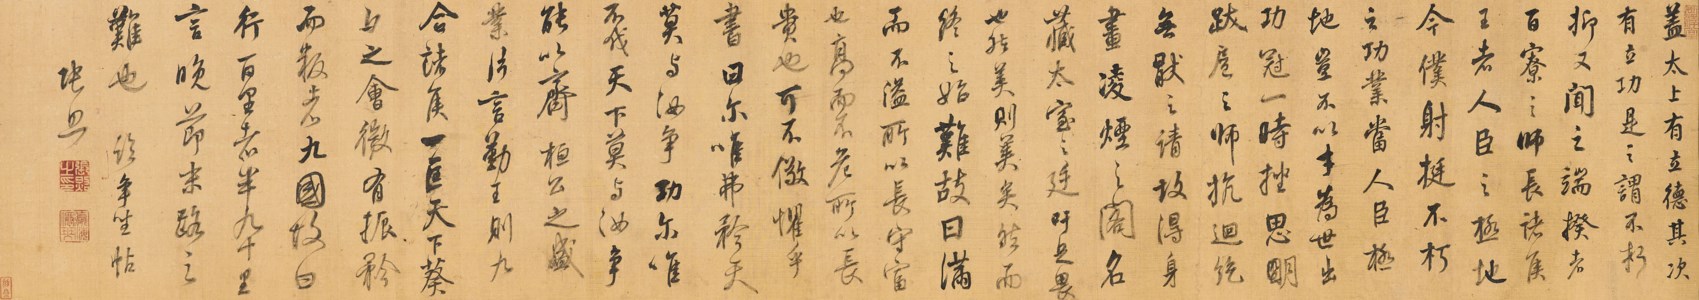 蓋太上有立德其次
有立功是之謂不朽
抑又聞之端揆者
百寮之師長諸侯
王者人臣之極地
今僕射挺不朽
之功業當人臣極
地豈不以才為世出
功冠一時挫思明
跋扈之師抗迴紇
無猒之請故得身
畫凌煙之閣名
藏太室之廷吁足畏
也然美則美矣然而
終之始難故曰滿
而不溢所以長守富
也高而不危所以長
貴也可不儆懼乎
書曰尔唯弗矜天
莫与汝爭功尔唯
不伐天下莫与汝爭
能以齊桓公之盛
業片言勤王則九
合諸侯一匡天下葵
丘之會微有振矜
而叛者九國故曰
行百里者半九十里
言晚節末路之
難也 臨爭坐帖
張照